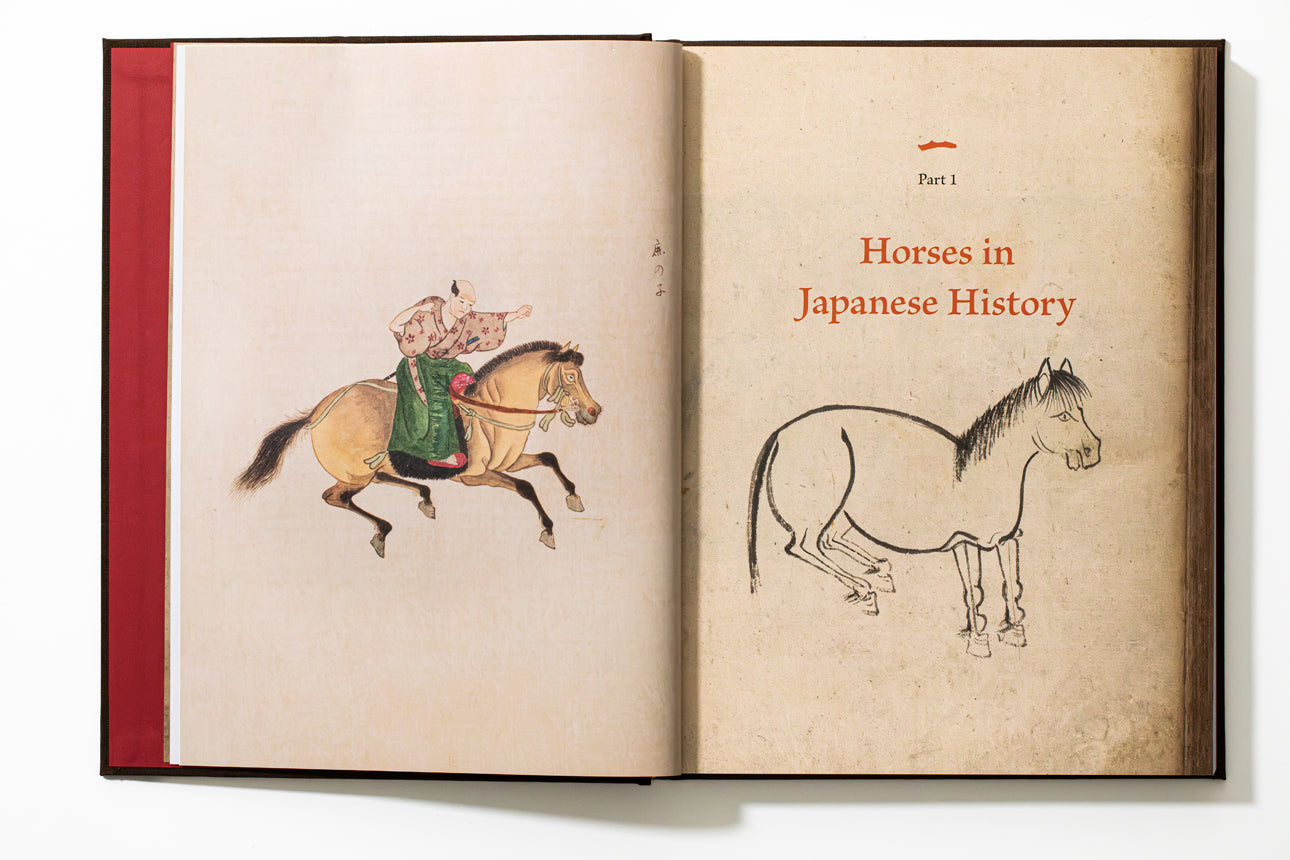 鹿の子
一
Part 1
Horses in
Japanese History